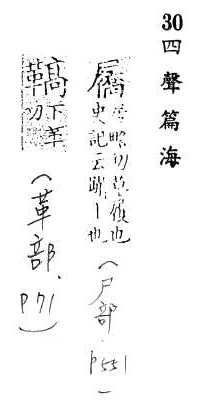 30 四聲篇海
屩
略切草履也
史記云躡丨也
(尸部. p551)
下革
切
(革部. p71)